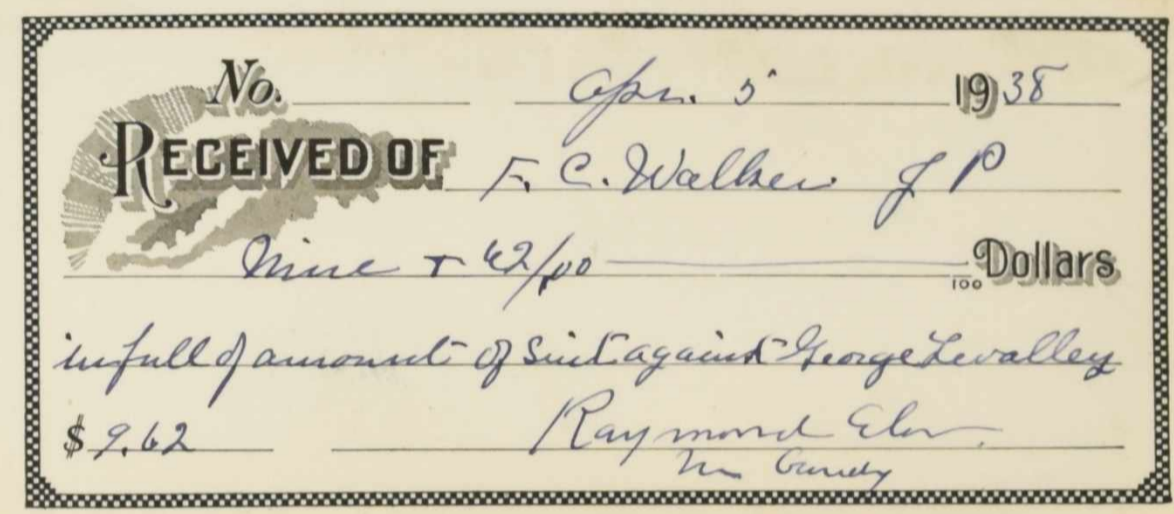 No. Apr. 5 1938
RECEIVED OF F. C. Walker J P
Nine + 62/00 100 Dollars
in full of amount of Suit against George Levalley
$ 9.62 Raymond